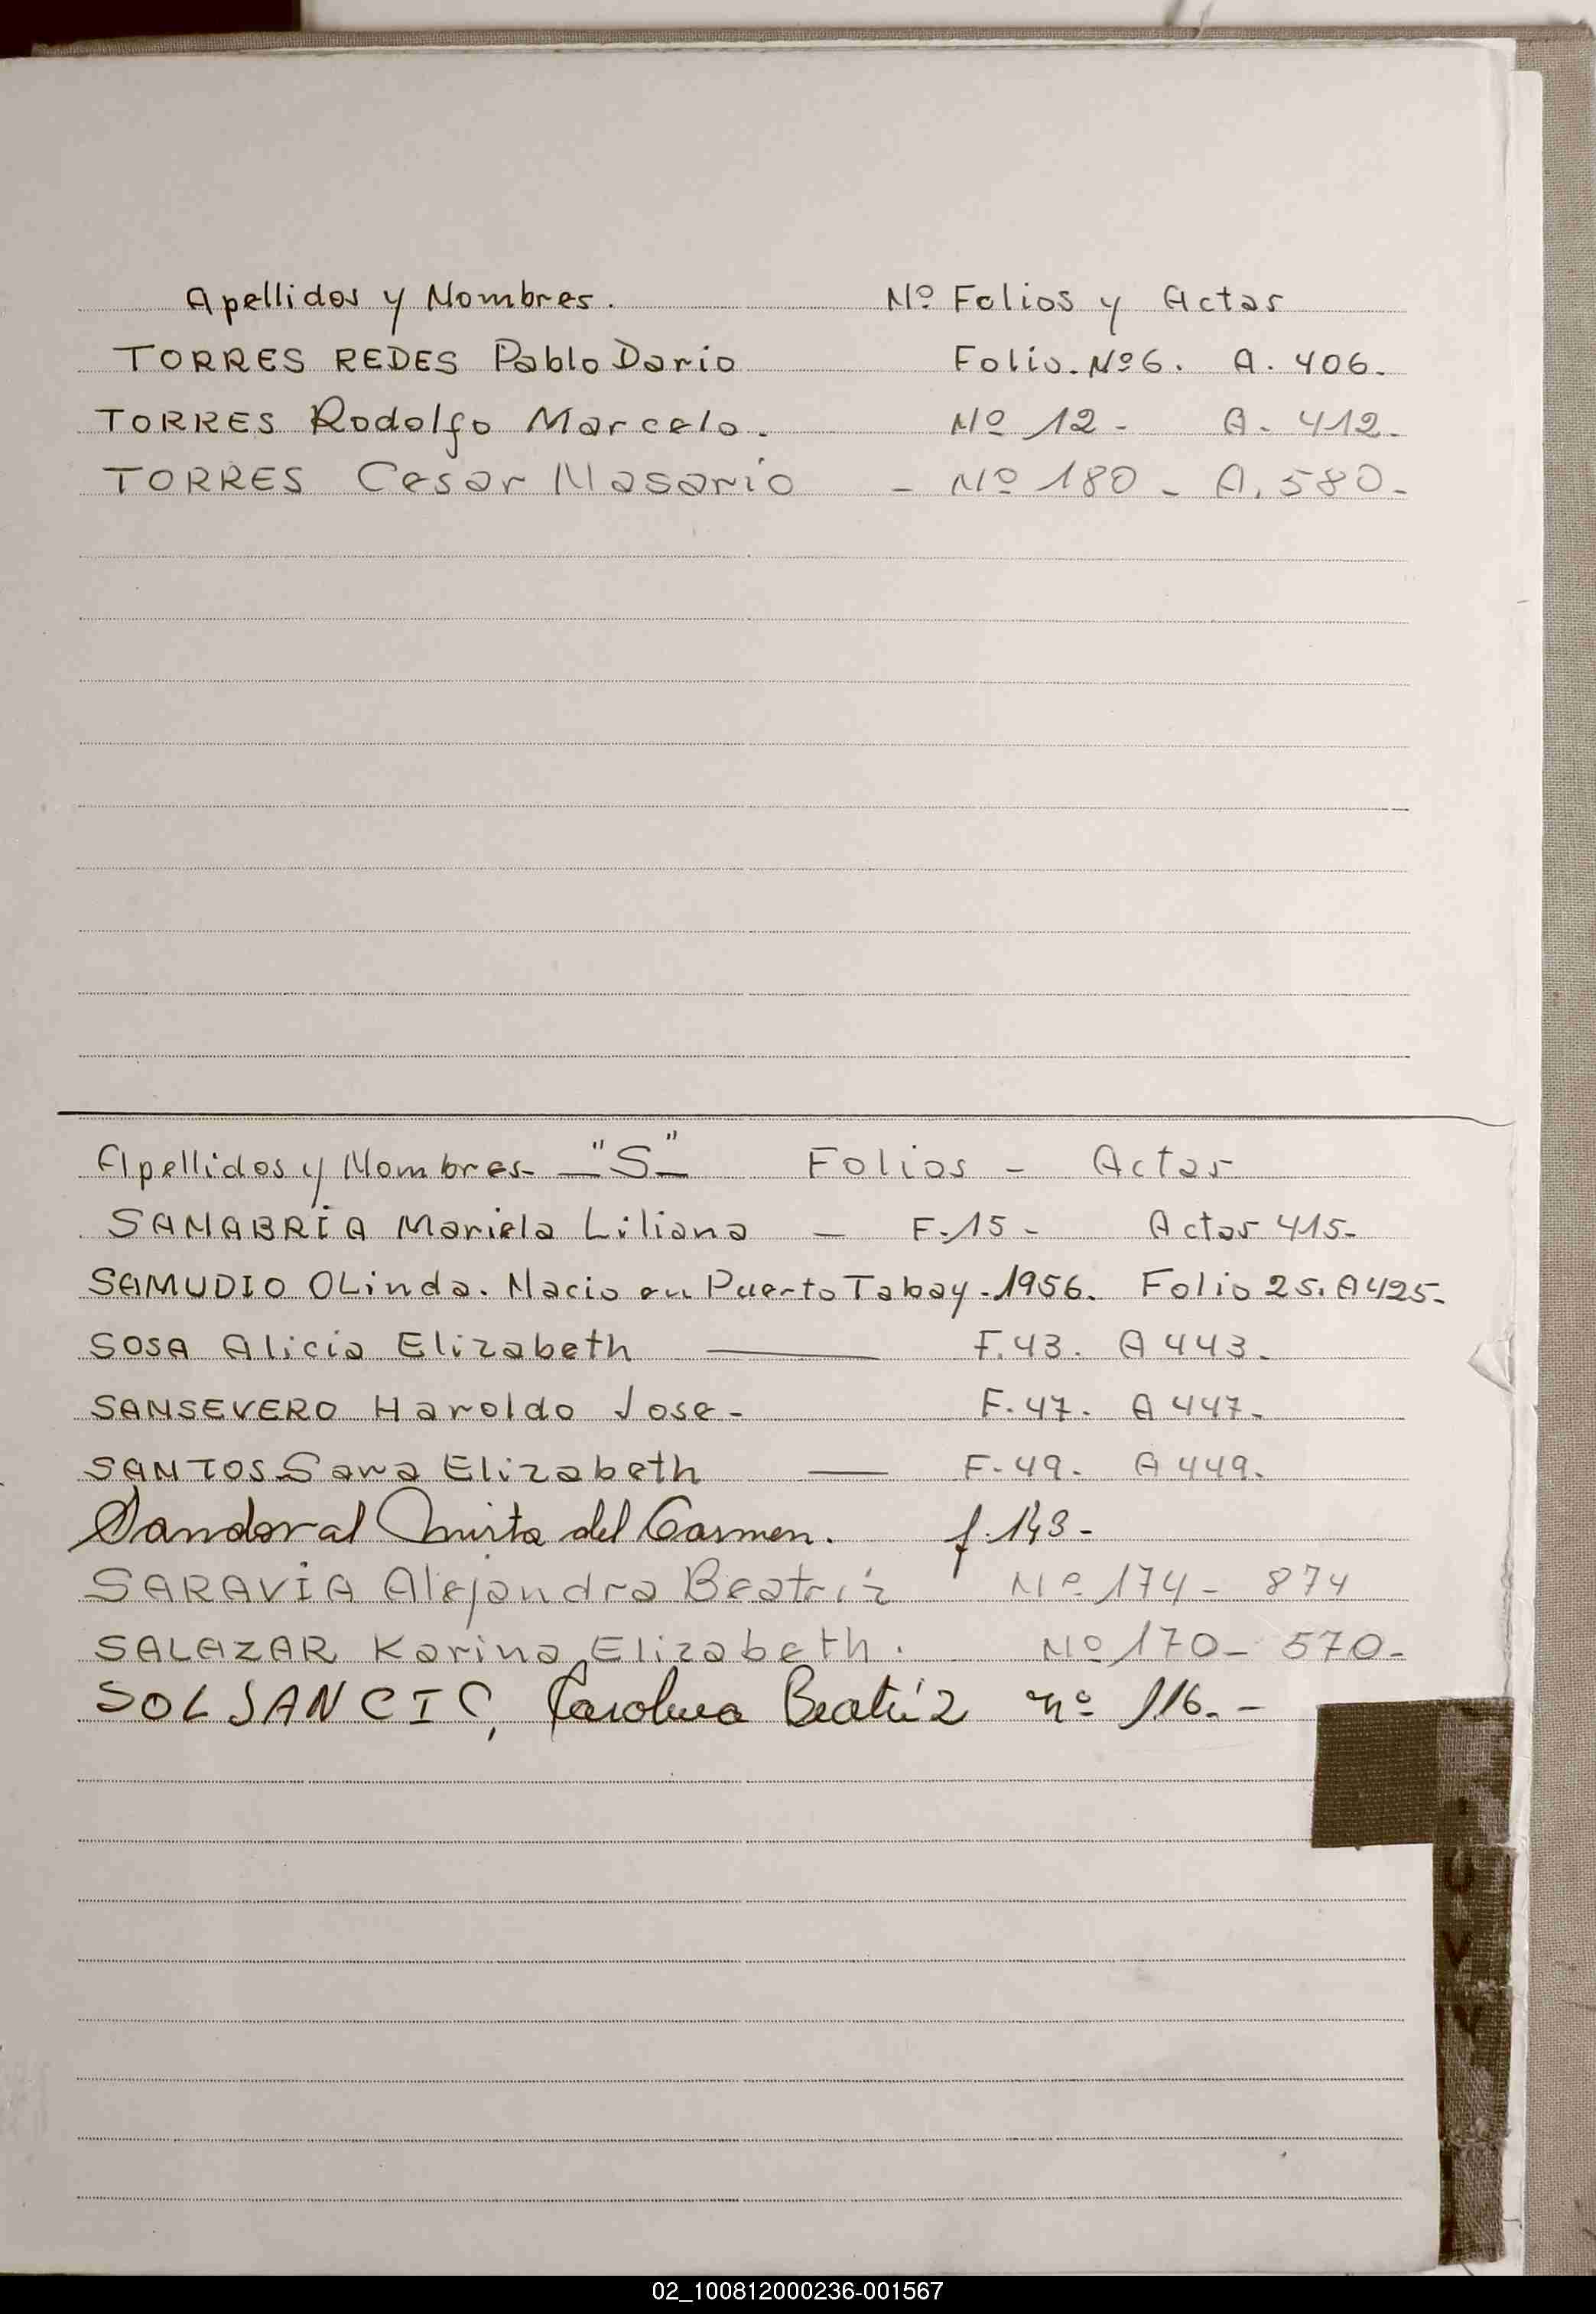 Apellidos y Nombres. Nº Folios y Actas
TORRES REDES Pablo Dario Folio. Nº 6. A. 406.
TORRES Rodolfo Marcelo. Nº 12 - A. 412.
TORRES Cesar Nasario - Nº 180 - A. 580-
Apellidos y Nombres- - "S" - Folios - Actas
SANABRÍA Mariela Liliana - F. 15 - Actas 415-
SAMUDIO OLinda. Nacio en Puerto Tabay. 1956. Folio 25. A 425-
SOSA Alicia Elizabeth — F. 43. A 443.
SANSEVERO Haroldo Jose - F. 47. A 447-
SANTOS Sara Elizabeth — F. 49. A 449.
Sandoval Mirta del Carmen. f. 143-
SARAVIA Alejandra Beatriz Nº 174 - 874
SALAZAR Karina Elizabeth. Nº 170 - 570-
SOLJANCIC, Carolina Beatríz nº 116. -
U
V
Y
02_100812000236-001567